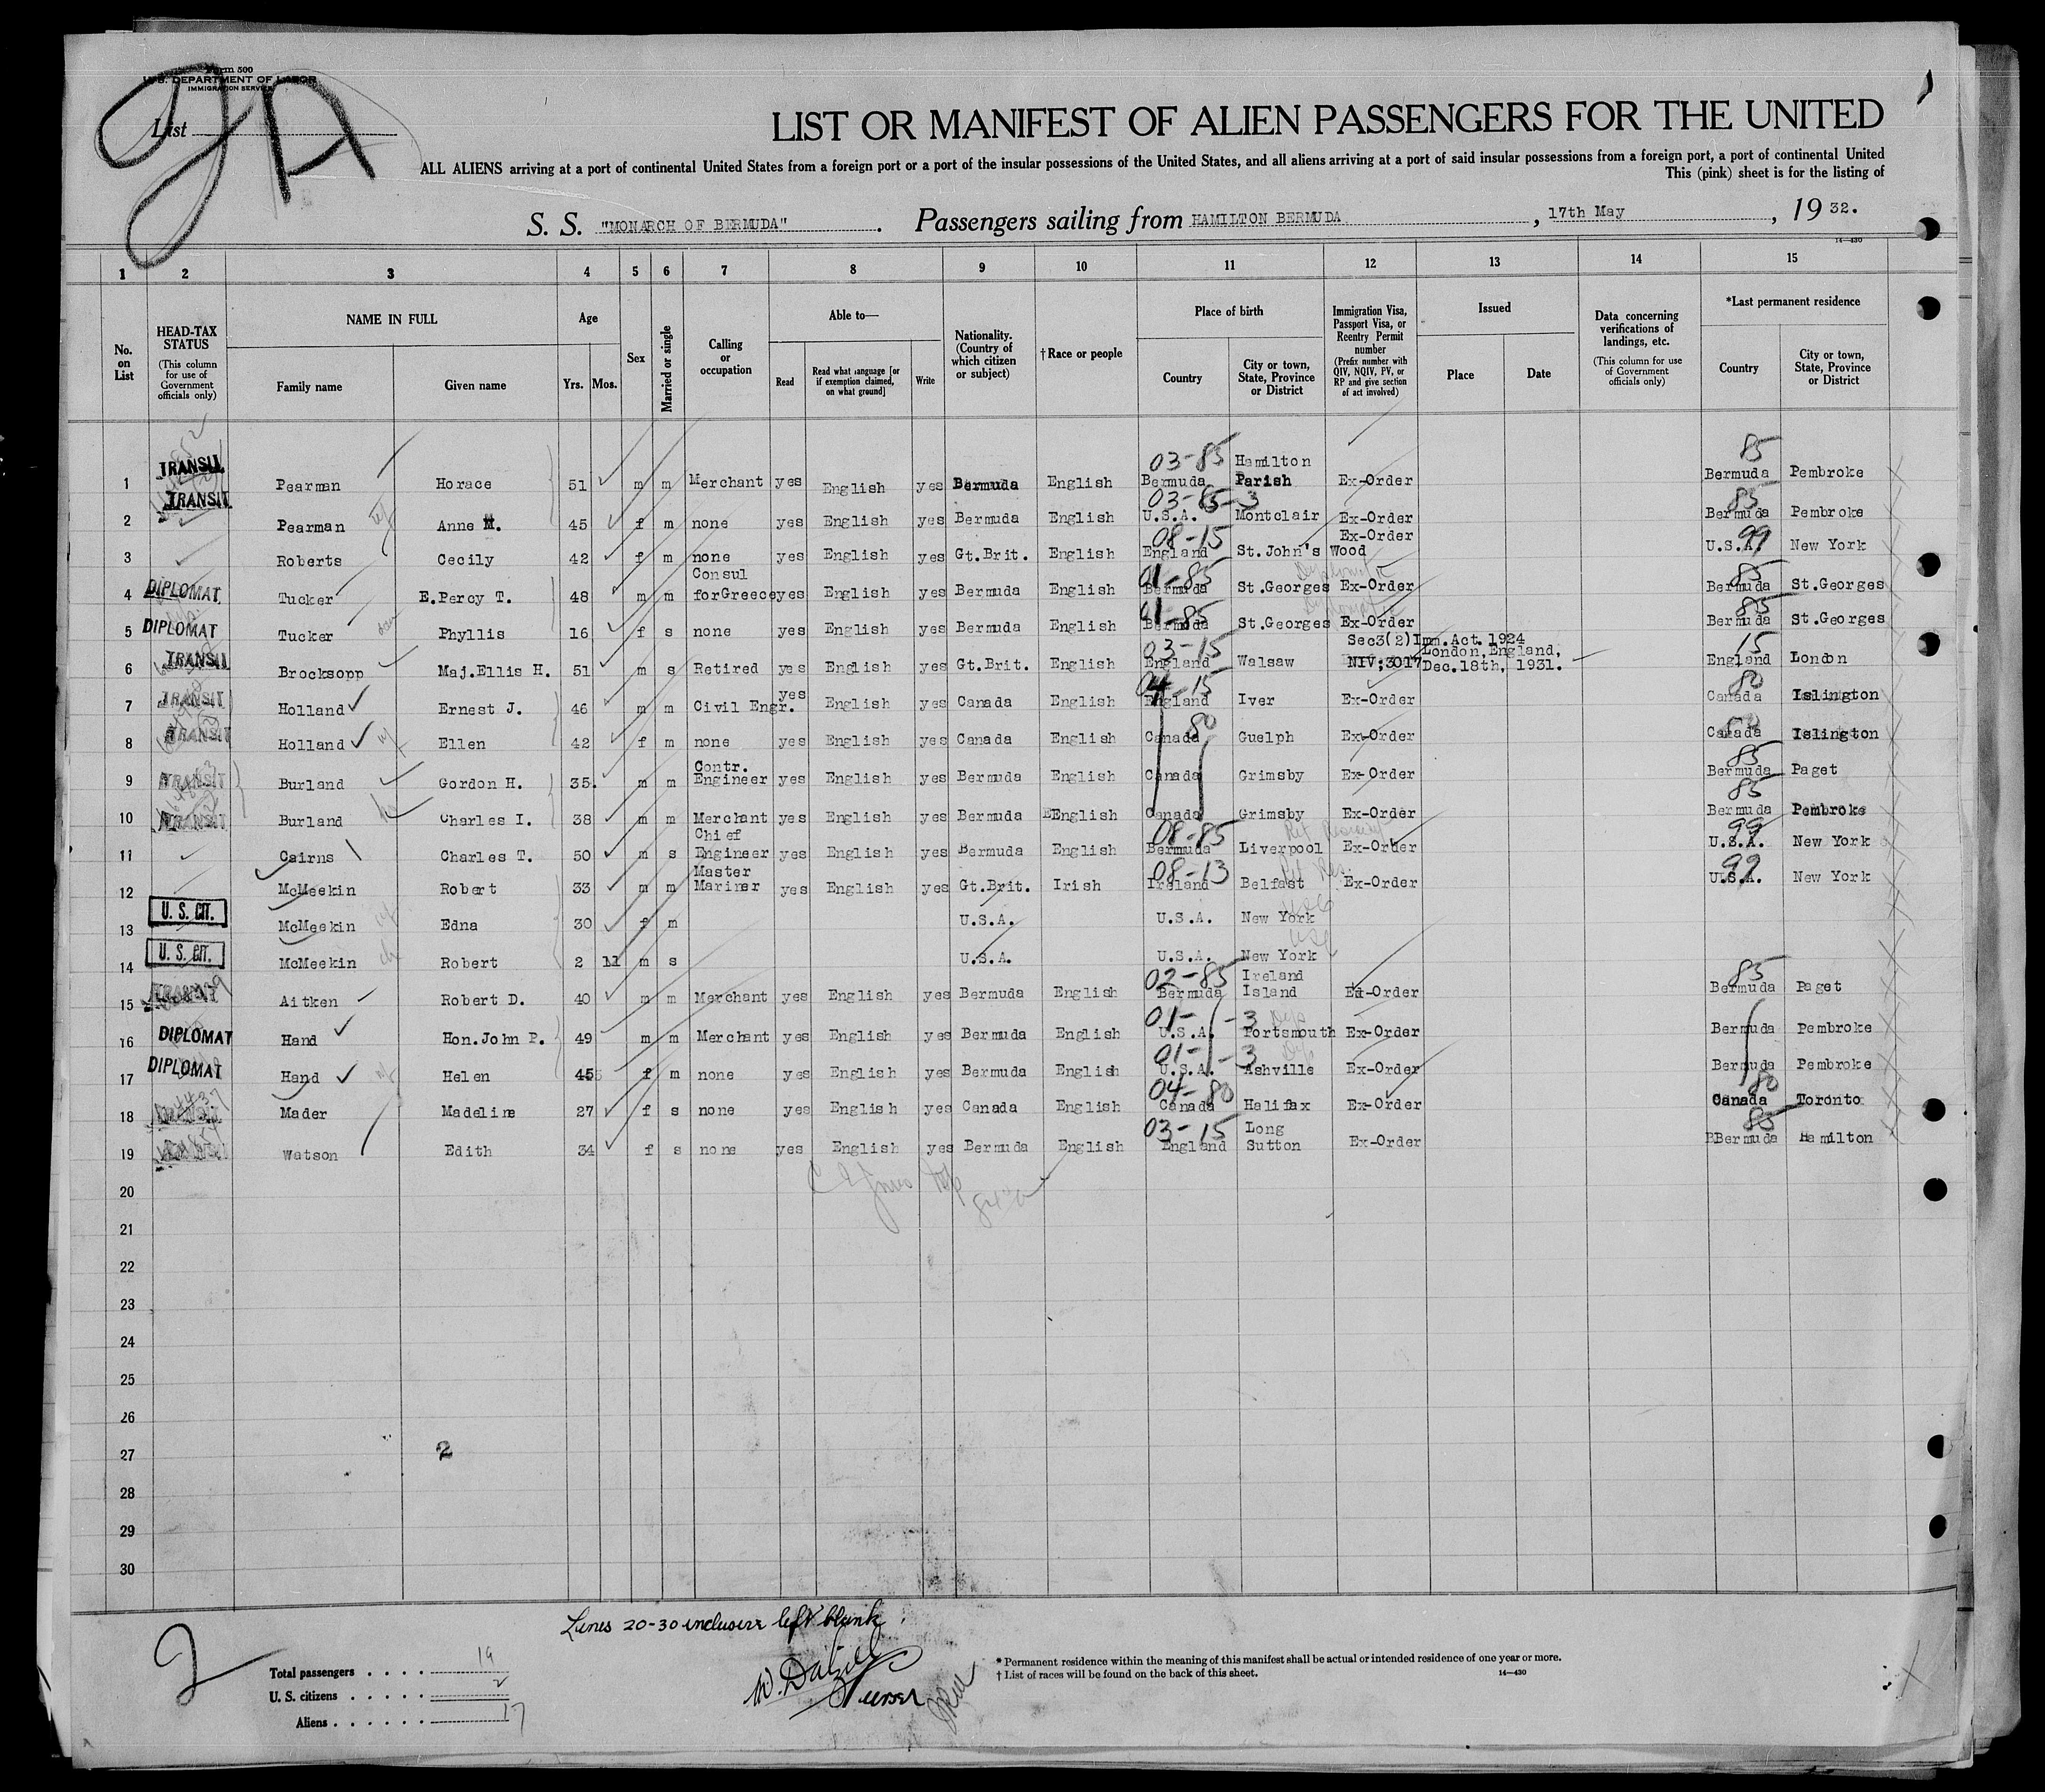 Form 500
U. S. DEPARTMENT OF LABOR
IMMIGRATION SERVICE
List
LIST OR MANIFEST OF ALIEN PASSENGERS FOR THE UNITED
ALL ALIENS arriving at a port of continental United States from a foreign port or a port of the insular possessions of the United States, and all aliens arriving at a port of said insular possessions from a foreign port, a port of continental United
This (pink) sheet is for the listing of
S. S. "MONARCH OF BERMUDA". Passengers sailing from HAMILTON BERMUDA, 17th May, 19 32.
14—430
1 2 3 4 5 6 7 8 9 10 11 12 13 14 15
No. on List
HEAD-TAX STATUS (This column for use of Government officials only)
NAME IN FULL Family name Given name
Age Yrs. Mos.
Sex
Married or single
Calling or occupation
Able to— Read Read what language [or if exemption claimed, on what ground] Write
Nationality. (Country of which citizen or subject)
†Race or people
Place of birth Country City or town, State, Province or District
Immigration Visa, Passport Visa, or Reentry Permit number (Prefix number with QIV, NQIV, PV, or RP and give section of act involved)
Issued Place Date
Data concerning verifications of landings, etc. (This column for use of Government officials only)
*Last permanent residence Country City or town, State, Province or District
1 TRANSIT Pearman Horace 51 m m Merchant yes English yes Bermuda English 03-85 Bermuda Hamilton Parish Ex-Order 85 Bermuda Pembroke
2 TRANSIT Pearman Anne M. 45 f m none yes English yes Bermuda English 03-85-3 U.S.A. Montclair Ex-Order 85 Bermuda Pembroke
3 Roberts Cecily 42 f m none yes English yes Gt.Brit. English 08-15 England St.John's Wood Ex-Order 99 U.S.A. New York
4 DIPLOMAT Tucker E.Percy T. 48 m m Consul forGreece yes English yes Bermuda English 01-85 Bermuda St.Georges Ex-Order 85 Bermuda St.Georges
5 DIPLOMAT Tucker Phyllis 16 f s none yes English yes Bermuda English 01-85 Bermuda St.Georges Ex-Order 85 Bermuda St.Georges
6 TRANSIT Brocksopp Maj.Ellis H. 51 m s Retired yes English yes Gt.Brit. English 03-15 England Walsaw Sec3(2)Imm.Act.1924 NIV;3017 London,England, Dec.18th, 1931. 15 England London
7 TRANSIT Holland Ernest J. 46 m m Civil Engr. yes English yes Canada English 04-15 England Iver Ex-Order 80 Canada Islington
8 TRANSIT Holland Ellen 42 f m none yes English yes Canada English 80 Canada Guelph Ex-Order Canada Islington
9 TRANSIT Burland Gordon H. 35. m m Contr. Engineer yes English yes Bermuda English Canada Grimsby Ex-Order 85 Bermuda Paget
10 TRANSIT Burland Charles I. 38 m m Merchant yes English yes Bermuda English Canada Grimsby Ex-Order 85 Bermuda Pembroke
11 Cairns Charles T. 50 m s Chief Engineer yes English yes Bermuda English 08-85 Bermuda Liverpool Ex-Order 99 U.S.A. New York
12 McMeekin Robert 33 m m Master Mariner yes English yes Gt.Brit. Irish 08-13 Ireland Belfast Ex-Order 99 U.S.A. New York
13 U. S. CIT. McMeekin Edna 30 f m U.S.A. U.S.A. New York
14 U. S. CIT. McMeekin Robert 2 11 m s U.S.A. U.S.A. New York
15 Aitken Robert D. 40 m m Merchant yes English yes Bermuda English 02-85 Bermuda Ireland Island Ex-Order 85 Bermuda Paget
16 DIPLOMAT Hand Hon.John P. 49 m m Merchant yes English yes Bermuda English 01- -3 U.S.A. Portsmouth Ex-Order Bermuda Pembroke
17 DIPLOMAT Hand Helen 45 f m none yes English yes Bermuda English 01- -3 U.S.A. Ashville Ex-Order Bermuda Pembroke
18 Mader Madeline 27 f s none yes English yes Canada English 04-80 Canada Halifax Ex-Order 80 Canada Toronto
19 Watson Edith 34 f s none yes English yes Bermuda English 03-15 England Long Sutton Ex-Order 85 BBermuda Hamilton
20
21
22
23
24
25
26
27 2
28
29
30
Lines 20-30 inclusive left blank.
2
Total passengers . . . . 19
U. S. citizens . . . . . 2
Aliens . . . . . . 17
Purser
* Permanent residence within the meaning of this manifest shall be actual or intended residence of one year or more.
† List of races will be found on the back of this sheet.
14—430